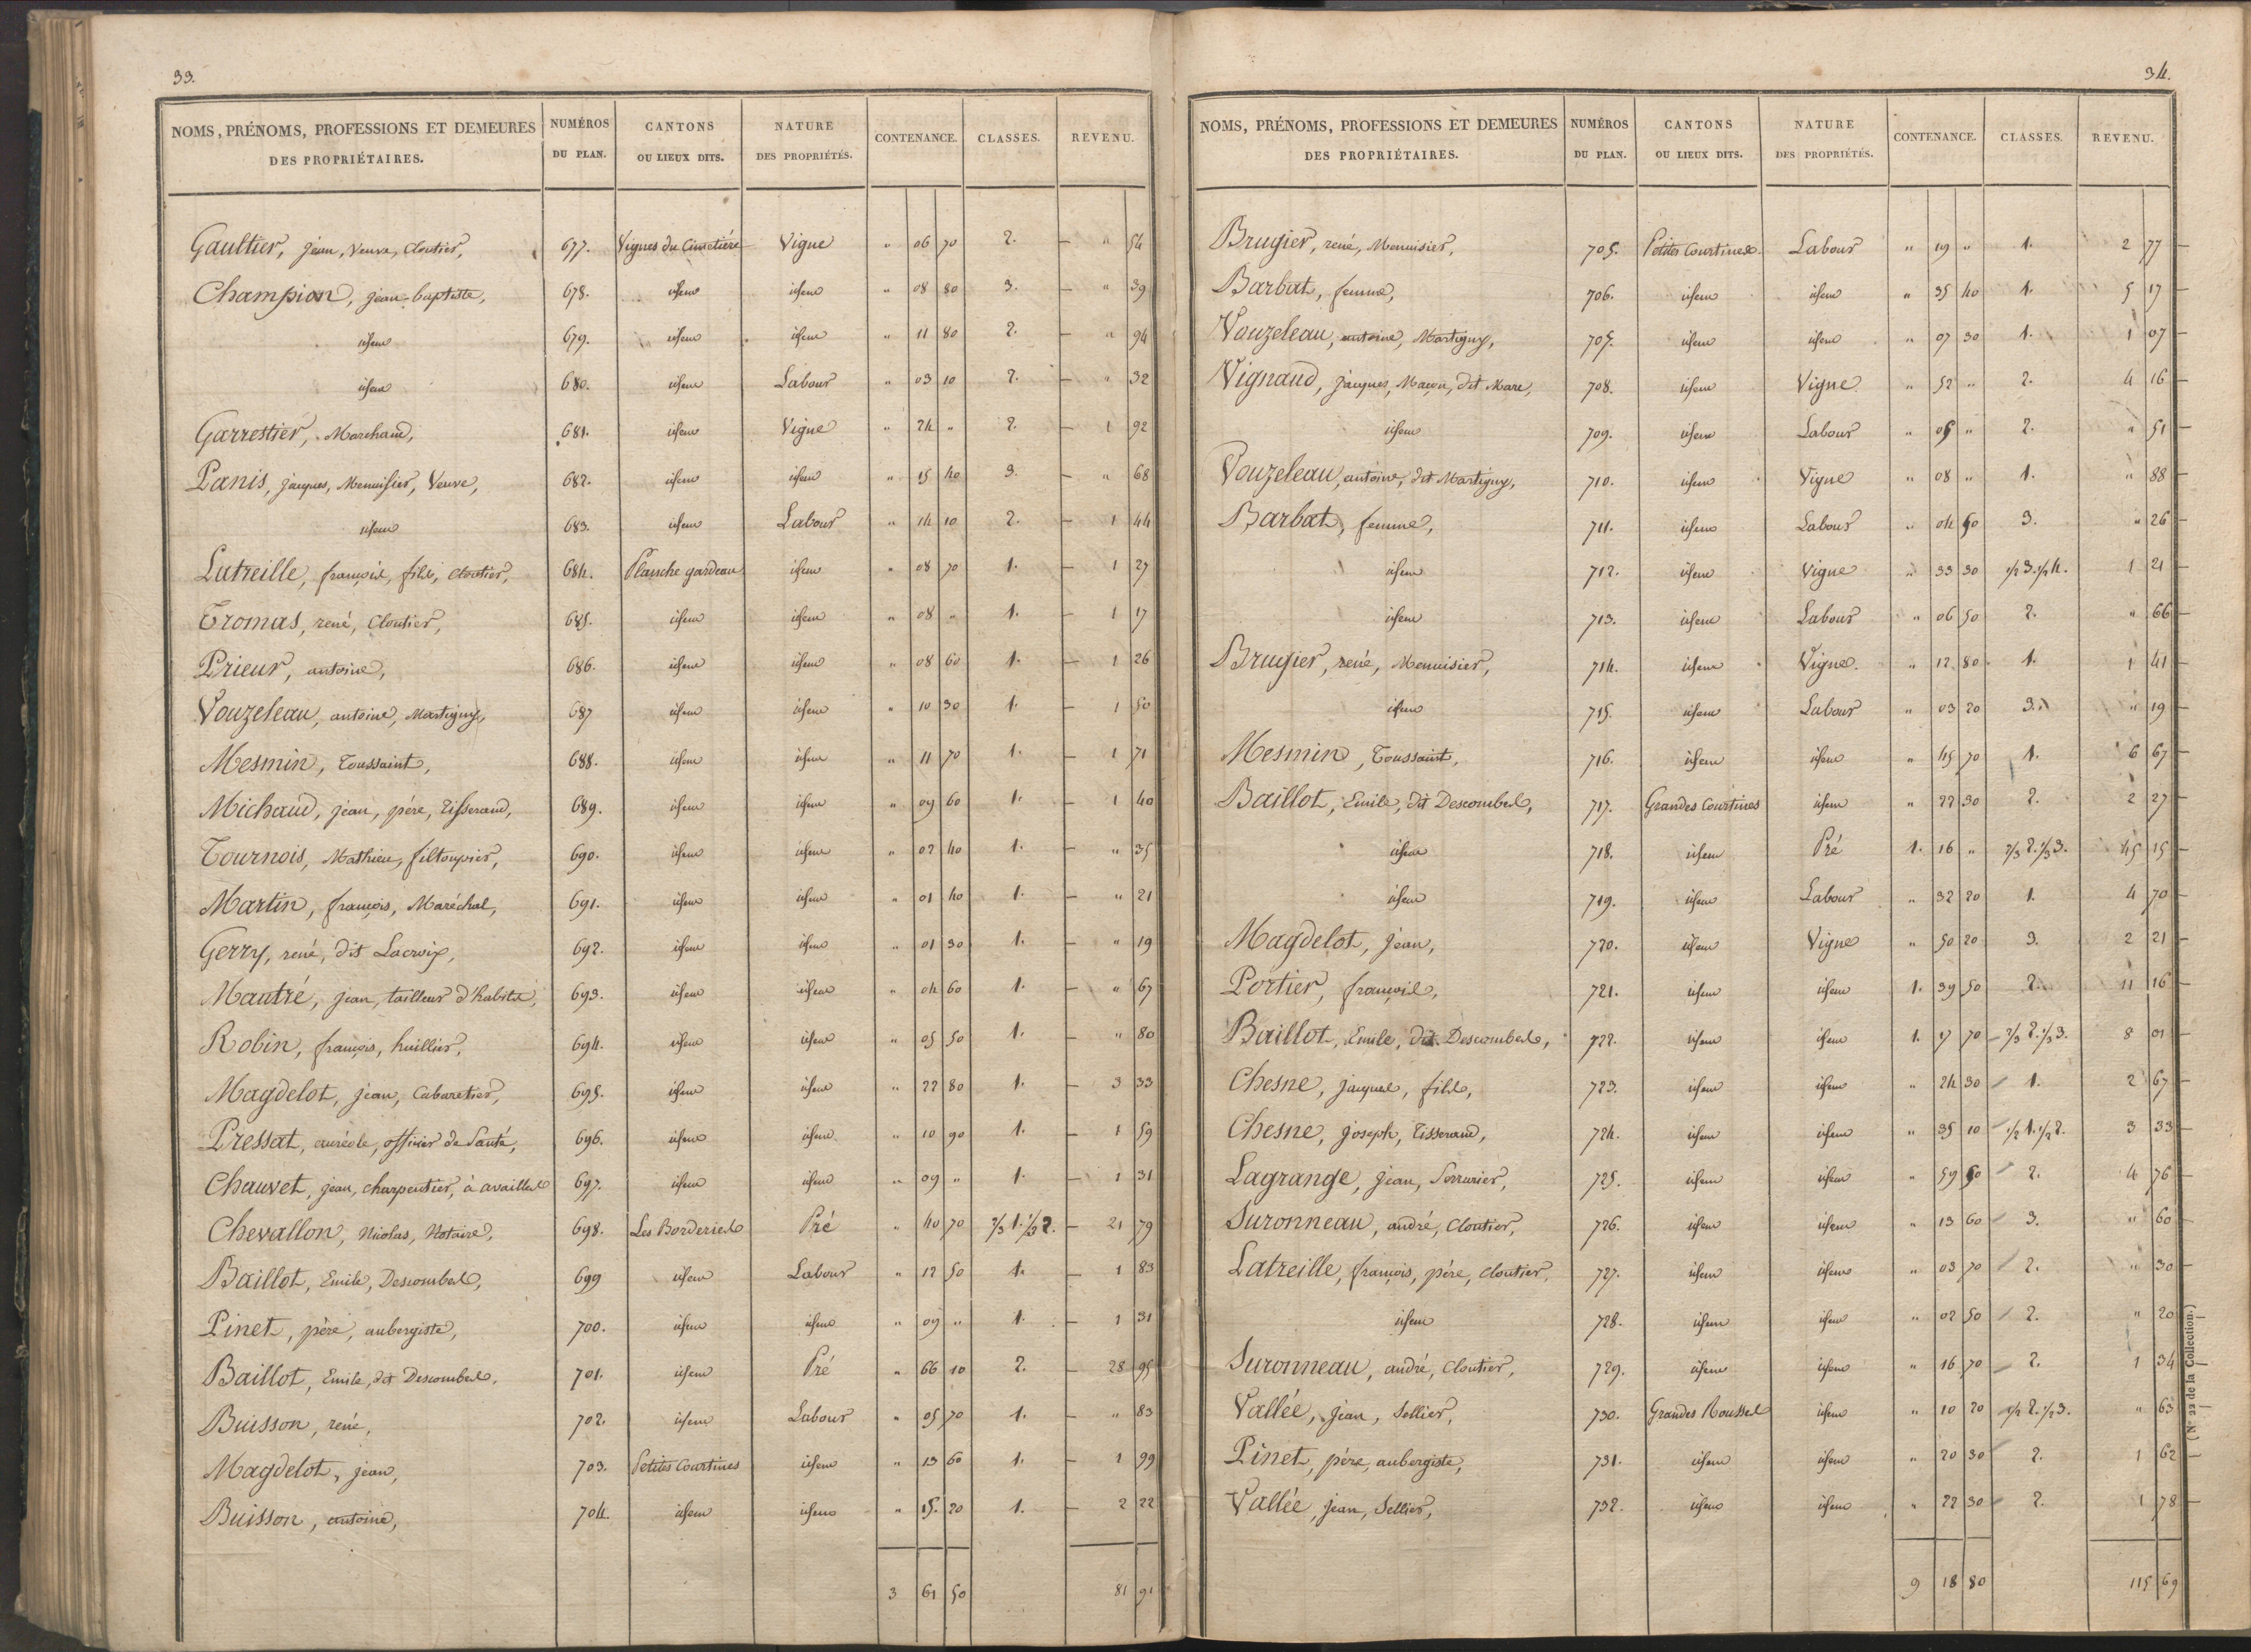 33.
NOMS, PRÉNOMS, PROFESSIONS ET DEMEURES DES PROPRIÉTAIRES. NUMÉROS DU PLAN. CANTONS OU LIEUX DITS. NATURE DES PROPRIÉTÉS. CONTENANCE. CLASSES. REVENU.
Gaultier, jean, Veuve, Cloutier, 677. Vignes du Cimetière Vigne " 06 70 2. — " 54
Champion, jean-baptiste, 678. idem idem " 08 80 3. — " 39
idem 679. idem idem " 11 80 2. — " 94
idem 680. idem Labour " 03 10 2. — " 32
Garrestier, Marchand, 681. idem Vigne " 24 " 2. — 1 92
Panis, jacques, Menuisier, Veuve, 682. idem idem " 15 40 3. — " 68
idem 683. idem Labour " 14 10 2. — 1 44
Latreille, françois, fils, Cloutier, 684. Planche gardeau idem " 08 70 1. — 1 27
Tromas, rené, Cloutier, 685. idem idem " 08 " 1. — 1 17
Prieur, antoine, 686. idem idem " 08 60 1. — 1 26
Vouzeleau, antoine, Martigny, 687 idem idem " 10 30 1. — 1 50
Mesmin, Toussaint, 688. idem idem " 11 70 1. — 1 71
Michaud, jean, père, Tisserand, 689. idem idem " 09 60 1. — 1 40
Tournois, Mathieu, filtoupier, 690. idem idem " 02 40 1. — " 35
Martin, françois, Maréchal, 691. idem idem " 01 40 1. — " 21
Gerry, rené, dit Lacroix, 692. idem idem " 01 30 1. — " 19
Mautré, jean, tailleur d'habits, 693. idem idem " 04 60 1. — " 67
Robin, françois, huillier, 694. idem idem " 05 50 1. — " 80
Magdelot, jean, Cabaretier, 695. idem idem " 22 80 1. — 3 33
Pressat, auréole, officier de Santé, 696. idem idem " 10 90 1. — 1 59
Chauvet, jean, charpentier, à availles 697. idem idem " 09 " 1. — 1 31
Chevallon, Nicolas, Notaire, 698. Les Borderies Pré " 40 70 2/3 1. 1/3 2. — 21 79
Baillot, Emile, Descombes, 699 idem Labour " 12 50 1. — 1 83
Pinet, père, aubergiste, 700. idem idem " 09 " 1. — 1 31
Baillot, Emile, dit Descombes, 701. idem Pré " 66 10 2. — 28 95
Buisson, rené, 702. idem Labour " 05 70 1. — " 83
Magdelot, jean, 703. Petites Courtines idem " 13 60 1. — 1 99
Buisson, antoine, 704. idem idem " 15. 20 1. — 2 22
3 61 50 81 91
34.
NOMS, PRÉNOMS, PROFESSIONS ET DEMEURES DES PROPRIÉTAIRES. NUMÉROS DU PLAN. CANTONS OU LIEUX DITS. NATURE DES PROPRIÉTÉS. CONTENANCE. CLASSES. REVENU.
Brugier, rené, Menuisier, 705. Petites Courtines Labour " 19 " 1. 2 77 —
Barbat, femme, 706. idem idem " 35 40 1. 5 17 —
Vouzeleau, antoine, Martigny, 707. idem idem " 07 30 1. 1 07 —
Vignaud, jacques, Maçon, dit Mare, 708. idem Vigne " 52 " 2. 4 16 —
idem 709. idem Labour " 05 " 2. " 51 —
Vouzeleau, antoine, dit Martigny, 710. idem Vigne " 08 " 1. " 88 —
Barbat, femme, 711. idem Labour " 04 60 3. " 26 —
idem 712. idem Vigne " 33 30 1/2 3. 1/2 4. 1 21 —
idem 713. idem Labour " 06 50 2. " 66 —
Brugier, rené, Menuisier, 714. idem Vigne " 12 80 1. 1 41 —
idem 715. idem Labour " 03 20 3. " 19 —
Mesmin, Toussaint, 716. idem idem " 45 70 1. 6 67 —
Baillot, Emile, dit Descombes, 717. Grandes Courtines idem " 22 30 2. 2 27 —
idem 718. idem Pré 1. 16 " 2/3 2. 1/3 3. 45 15 —
idem 719. idem Labour " 32 20 1. 4 70 —
Magdelot, jean, 720. idem Vigne " 50 20 3. 2 21 —
Portier, françois, 721. idem idem 1. 39 50 2. 11 16 —
Baillot, Emile, dit Descombes, 722. idem idem 1. 17 70 2/3 2. 1/3 3. 8 01 —
Chesne, jacques, fils, 723. idem idem " 24 30 1. 2 67 —
Chesne, joseph, Tisserand, 724. idem idem " 35 10 1/2 1. 1/2 2. 3 33 —
Lagrange, jean, Serrurier, 725. idem idem " 59 50 2. 4 76 —
Suronneau, andré, Cloutier, 726. idem idem " 13 60 3. " 60 —
Latreille, françois, père, Cloutier, 727. idem idem " 03 70 2. " 30 —
idem 728. idem idem " 02 50 2. " 20 —
Suronneau, andré, Cloutier, 729. idem idem " 16 70 2. 1 34 —
Vallée, jean, Sellier, 730. Grandes Rousses idem " 10 20 1/2 2. 1/2 3. " 63 —
Pinet, père, aubergiste, 731. idem idem " 20 30 2. 1 62 —
Vallée, jean, Sellier, 732. idem idem " 22 30 2. 1 78 —
9 18 80 115 69
(N° 22 de la Collection.)